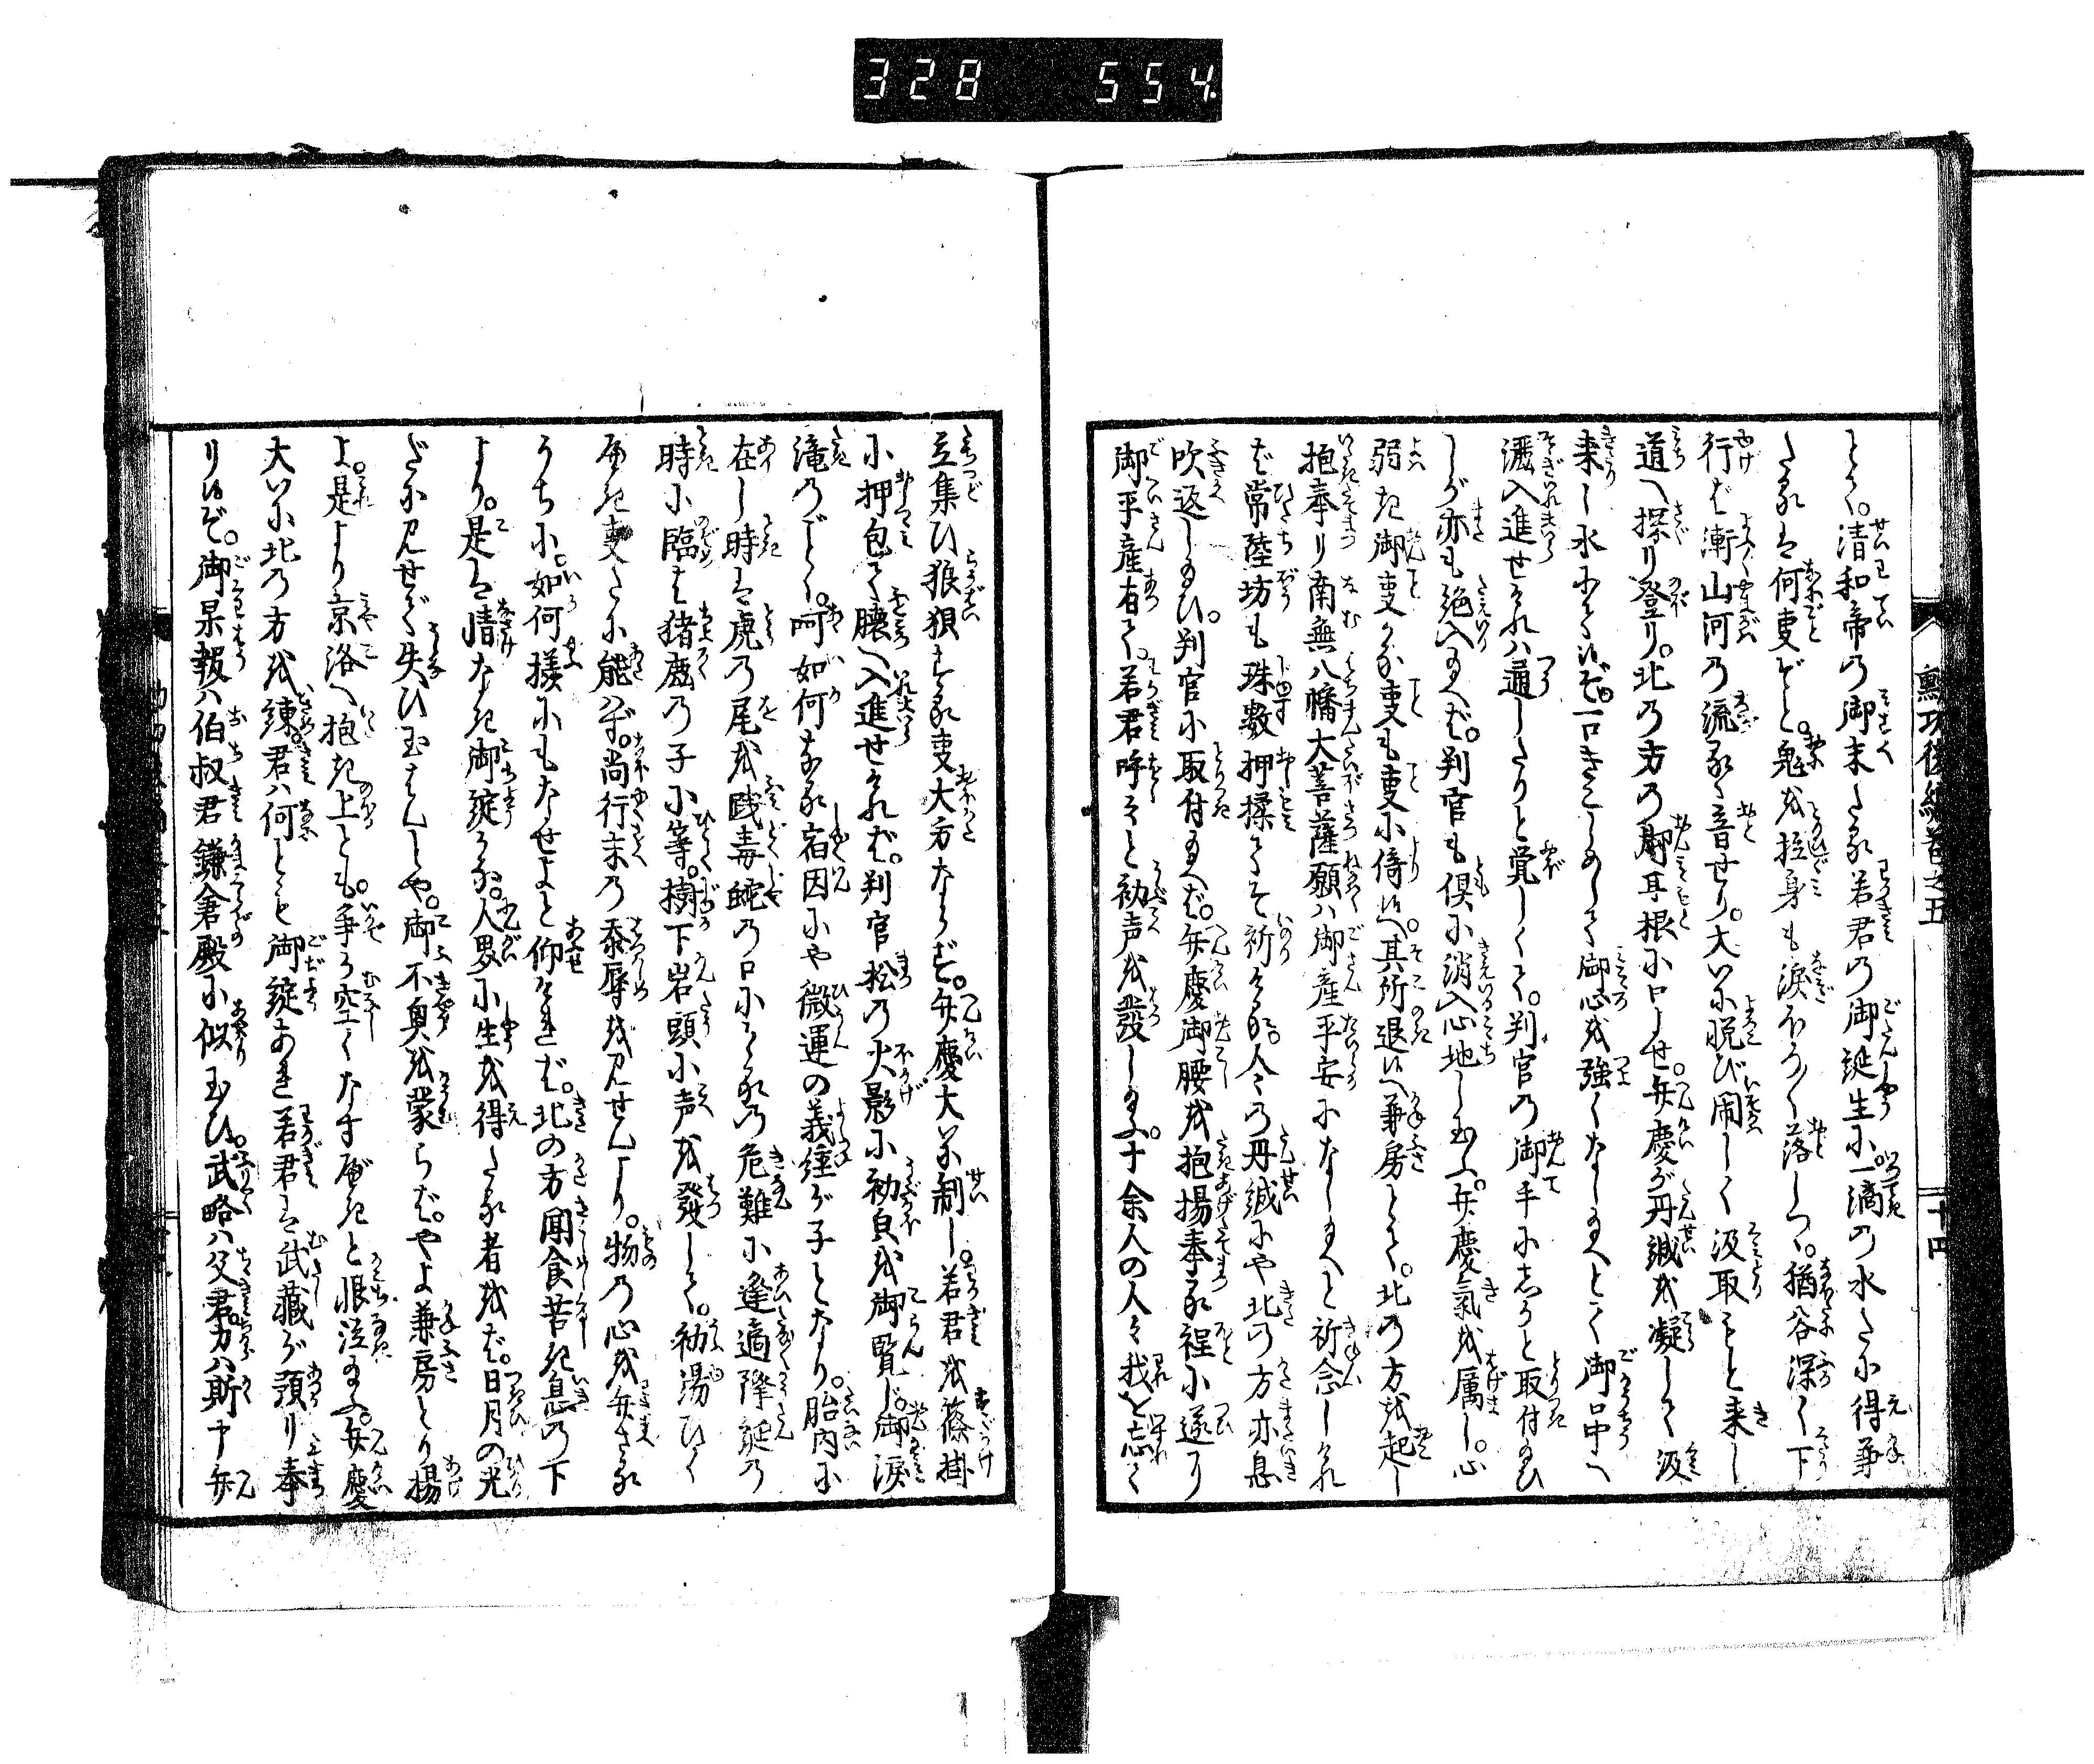 328 554
勲功後編巻之五 十四
とく。清和帝の御末たる若君の御誕生に一滴の水だに得兼
たるは何事ぞと。鬼を拉身も涙ほろ〳〵落しつ。猶谷深く下
行ば漸山河の流るゝ音せり。大いに脱び閙しく汲取もと来し
道へ探り登り。北の方の御耳根に口よせ。弁慶が丹誠を凝して汲
来りし水にて候ぞ。一口きこしめして御心を強くなし給へとて御口中へ
洒入進せければ通したりと覚しくて。判官の御手にしかと取付給ひ
しが亦も絶入給へば。判官も倶に消入心地し給ふ。弁慶氣を属し。心
弱き御事かな事も事に倚候へ。其所退候へ兼房とて。北の方を起し
抱奉り南無八幡大菩薩願くは御産平安になし給へと祈念しけれ
ば常陸坊も珠数押揉てぞ祈ける。人々の丹誠にや北の方亦息
吹返し給ひ。判官に取付給へば。弁慶御腰を抱揚奉る程に遂に
御平産有て。若君呱々と初声を發し給ふ。十余人の人々我を忘て
立集ひ狼狽する事大方ならず。弁慶大いに制し。若君を篠掛
に押包て懐へ入進せければ。判官松の火影に初貌を御覧じ。御涙
滝のごとく。呵如何なる宿因にや微運の義経が子となり。胎内に
在し時は虎の尾を践毒蛇の口にある危難に逢適降誕の
時に臨ては猪鹿の子に等。樹下岩頭に声を發して。初湯ひく
べき事だに能はず。尚行末の恭辱を見せんより。物の心を弁ざる
うちに。如何様にもなせよと仰ければ。北の方聞食苦き息の下
より。是は情なき御諚かな。人界に生を得たる者をば。日月の光
だに見せで失ひ玉はんとや。御不興を蒙らば。やよ兼房とり揚
よ。是より京洛へ抱き上とも。争か空くなすべきと恨泣給ふ。弁慶
大いに北の方を諌。君は何とも御諚あれ若君は武藏が預り奉
り候ぞ。御果報は伯叔君鎌倉殿に似玉ひ。武略は父君。力は斯申弁